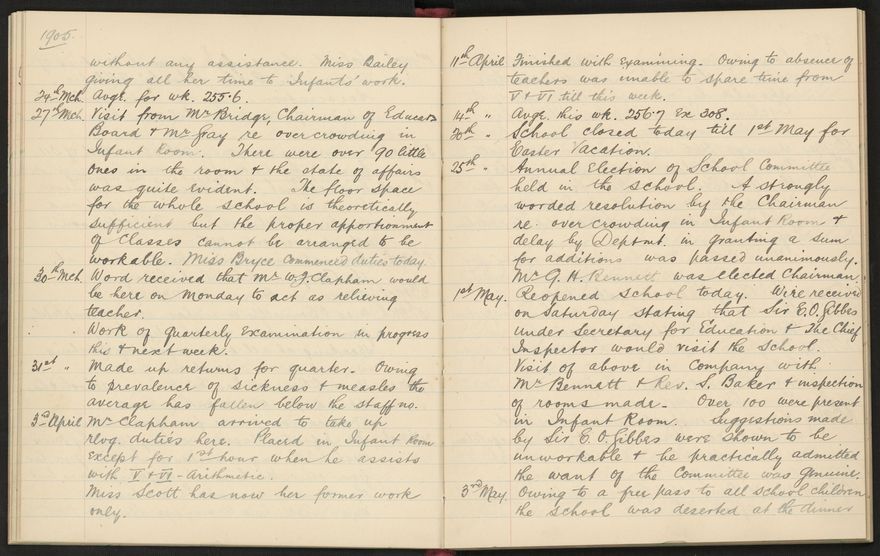 1905.
without any assistance. Miss Bailey
giving all her time to Infants' work.
24th Mch. Avge. for wk. 255.6.
27th Mch. Visit from Mr Bridge, Chairman of Educatn
Board & Mr Gray re overcrowding in
Infant Room. There were over 90 little
ones in the room & the state of affairs
was quite evident. The floor space
for the whole school is theoretically
sufficient but the proper apportionment
of Classes cannot be arranged to be
workable. Miss Bryce commenced duties today
30th Mch. Word received that Mr W.J. Clapham would
be here on Monday to act as relieving
teacher.
" Work of quarterly Examination in progress
this & next week.
31st " Made up returns for quarter. Owing
to prevalence of sickness & measles the
average has fallen below the staff no.
3rd April Mr Clapham arrived to take up
rlvg. duties here. Placed in Infant Room
except for 1st hour when he assists
with V & VI - Arithmetic.
Miss Scott has now her former work
only.
11th April Finished with Examining. Owing to absence of
teachers was unable to spare time from
V & VI till this week.
14th " Avge. this wk. 256.7 Ex 308.
20th " School closed today till 1st May for
Easter Vacation.
25th " Annual Election of School Committee
held in the school. A strongly
worded resolution by the Chairman
re overcrowding in Infant Room &
delay by Deptmt. in granting a sum
for additions was passed unanimously.
Mr G. H. Bennett was elected Chairman.
1st May. Reopened School today. Wire received
on Saturday stating that Sir E. O. Gibbes
under Secretary for Education & The Chief
Inspector would visit the School.
Visit of above in Company with
Mr Bennett & Rev. S. Baker & inspection
of rooms made. Over 100 were present
in Infant Room. Suggestions made
by Sir E. O. Gibbes were shown to be
unworkable & he practically admitted
the want of the Committee was genuine.
3rd May. Owing to a free pass to all school children
the school was deserted at the dinner